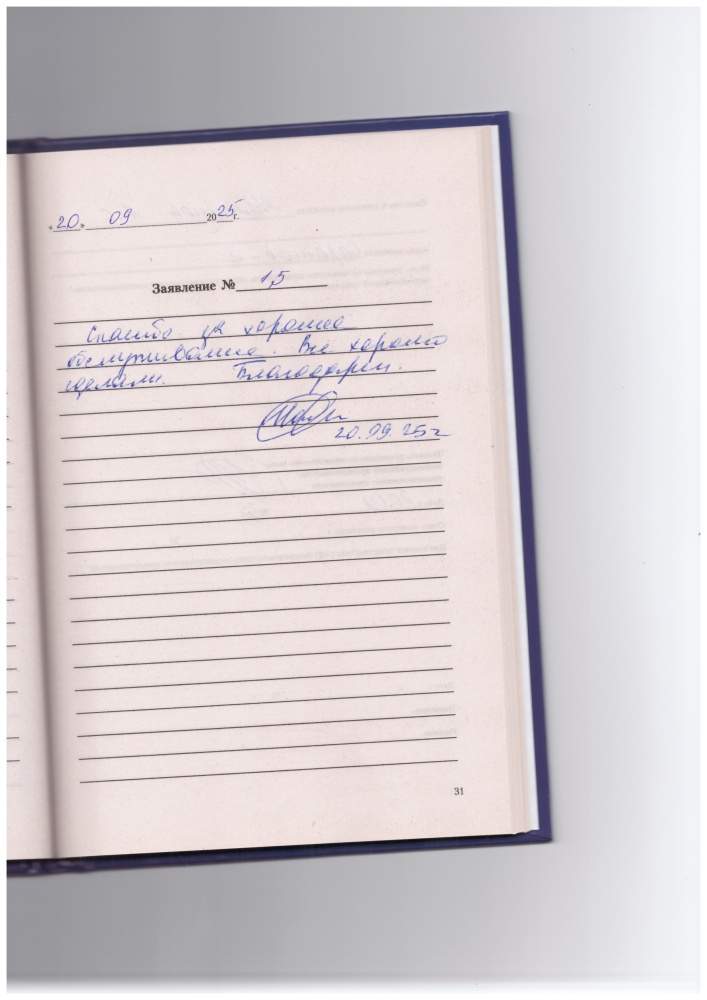 «20» 09 2025г.
Заявление № 15
Спасибо за хорошее
обслуживание. Все хорошо
сделали. Благодарим.
20.09.25г
31